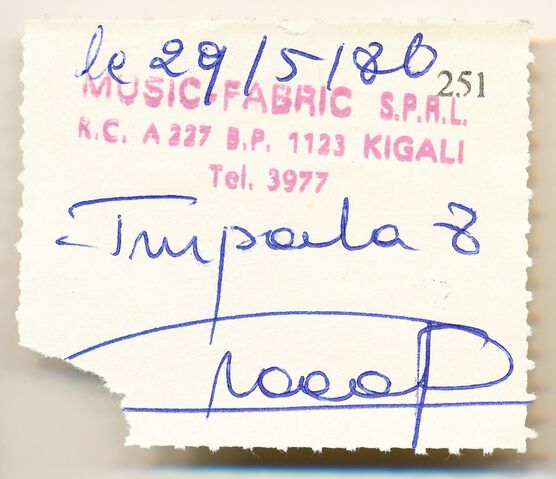 le 29/5/86
251
MUSIC-FABRIC S.P.R.L.
R.C. A 227 B.P. 1123 KIGALI
Tel. 3977
Impala 8